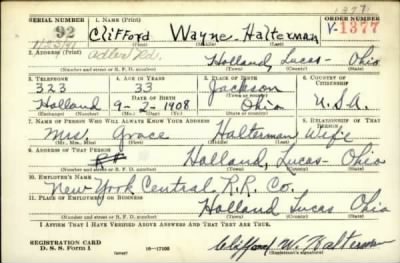 1371
SERIAL NUMBER 1. NAME (Print) ORDER NUMBER
92 Clifford Wayne Halterman V-1377
(First) (Middle) (Last)
2. ADDRESS (Print)
Adler Rd. Holland, Lucas - Ohio
(Number and street or R. F. D. number) (Town) (County) (State)
3. TELEPHONE 4. AGE IN YEARS 5. PLACE OF BIRTH 6. COUNTRY OF CITIZENSHIP
323 33 Jackson
DATE OF BIRTH (Town or county)
Holland 9-2-1908 Ohio U.S.A.
(Exchange) (Number) (Mo.) (Day) (Yr.) (State or country)
7. NAME OF PERSON WHO WILL ALWAYS KNOW YOUR ADDRESS 8. RELATIONSHIP OF THAT PERSON
Mrs. Grace Halterman Wife
(Mr., Mrs., Miss) (First) (Middle) (Last)
9. ADDRESS OF THAT PERSON
Holland, Lucas - Ohio
(Number and street or R. F. D. number) (Town) (County) (State)
10. EMPLOYER'S NAME
New York Central R.R. Co.
11. PLACE OF EMPLOYMENT OR BUSINESS
Holland Lucas Ohio
(Number and street or R. F. D. number) (Town) (County) (State)
I AFFIRM THAT I HAVE VERIFIED ABOVE ANSWERS AND THAT THEY ARE TRUE.
REGISTRATION CARD
D. S. S. Form 1 (over) 16-17105 Clifford W. Halterman
(Registrant's signature)